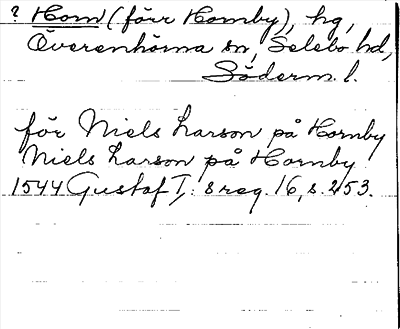 ? Hom (förr Hornby), hg,
Överenhörna sn, Selebo hd,
Söderm. l.
för Niels Larson på Hornby
Niels Larson på Hornby
1544 Gustaf I:s reg. 16, s. 253.